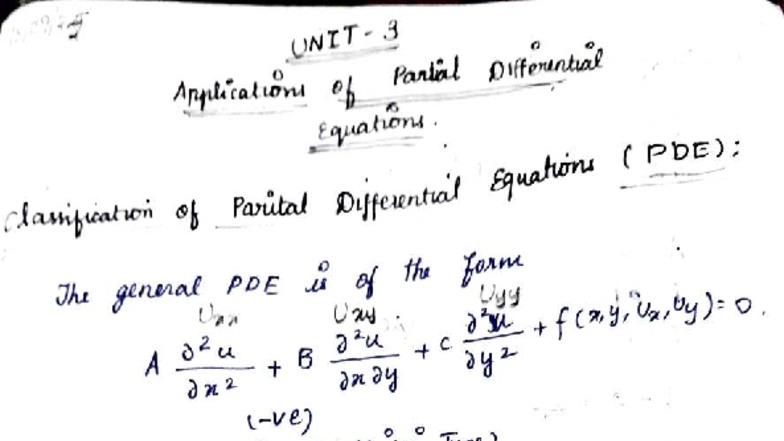 UNIT - 3
Applications of Partial Differential
Equations.
Classification of Parital Differential Equations (PDE):
The general PDE is of the form
Uxx Uxy Uyy
A ∂²u/∂x² + B ∂²u/∂x∂y + C ∂²u/∂y² + f(x,y,Ux,Uy)=0.
(-ve)